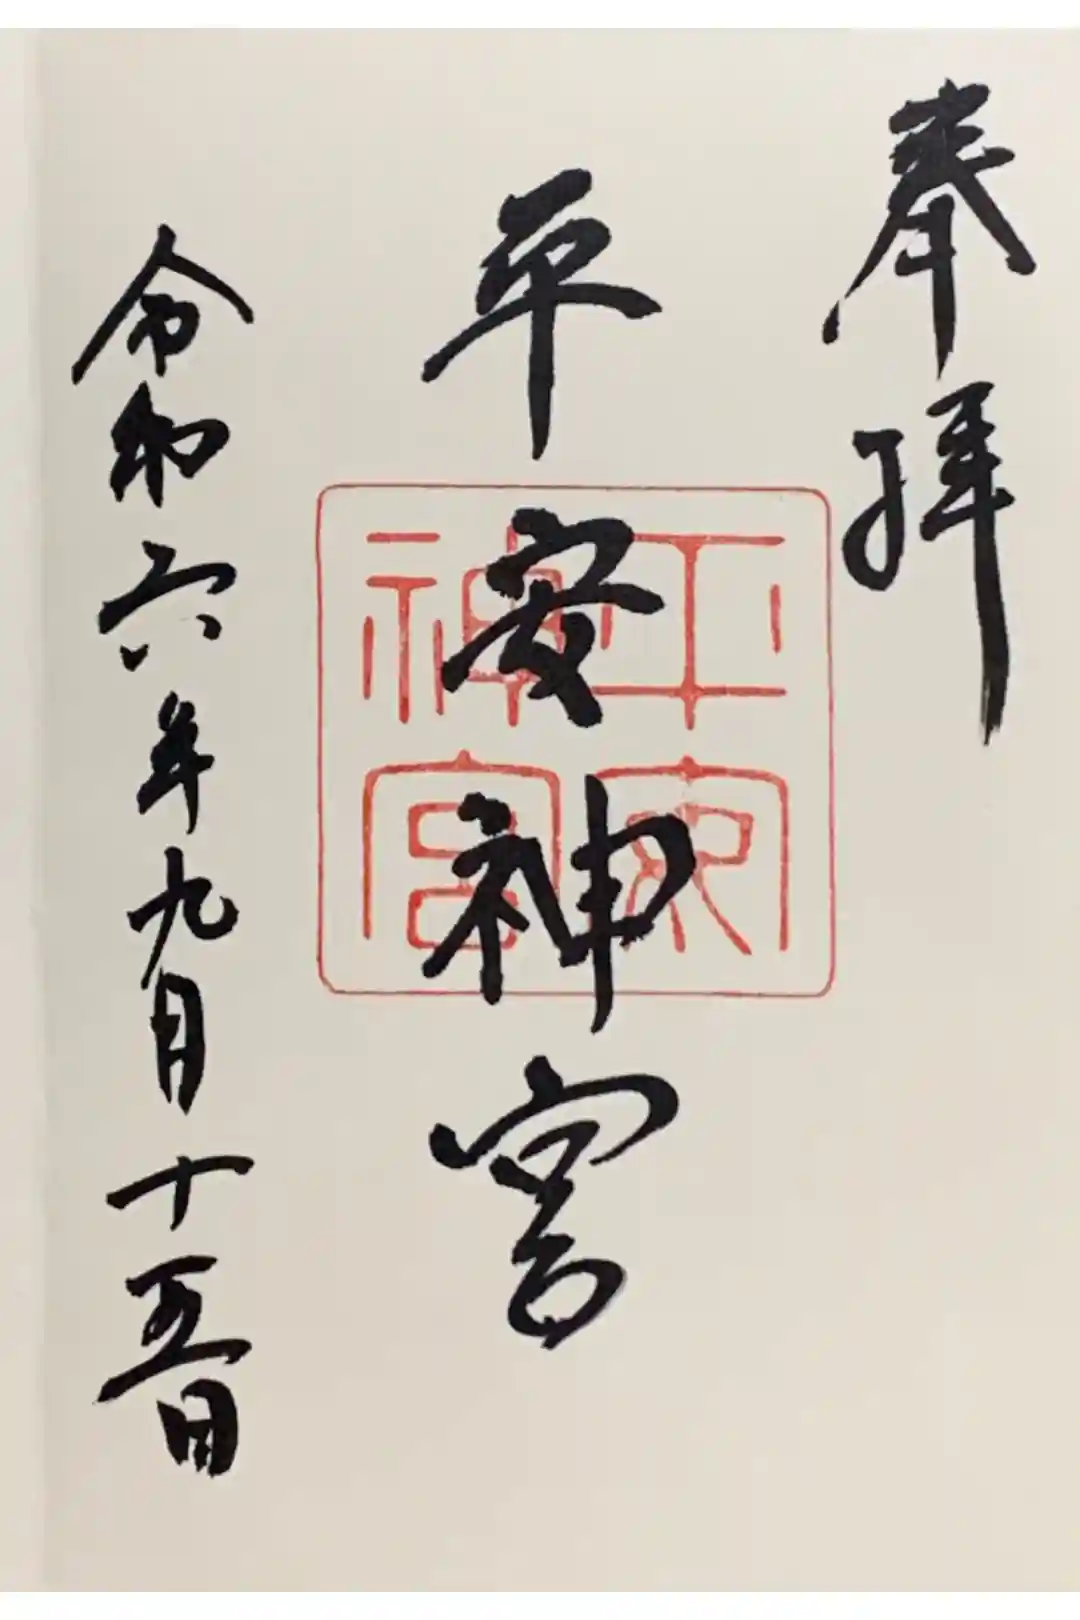 奉拝
平安神宮
平安神宮
令和六年九月十五日